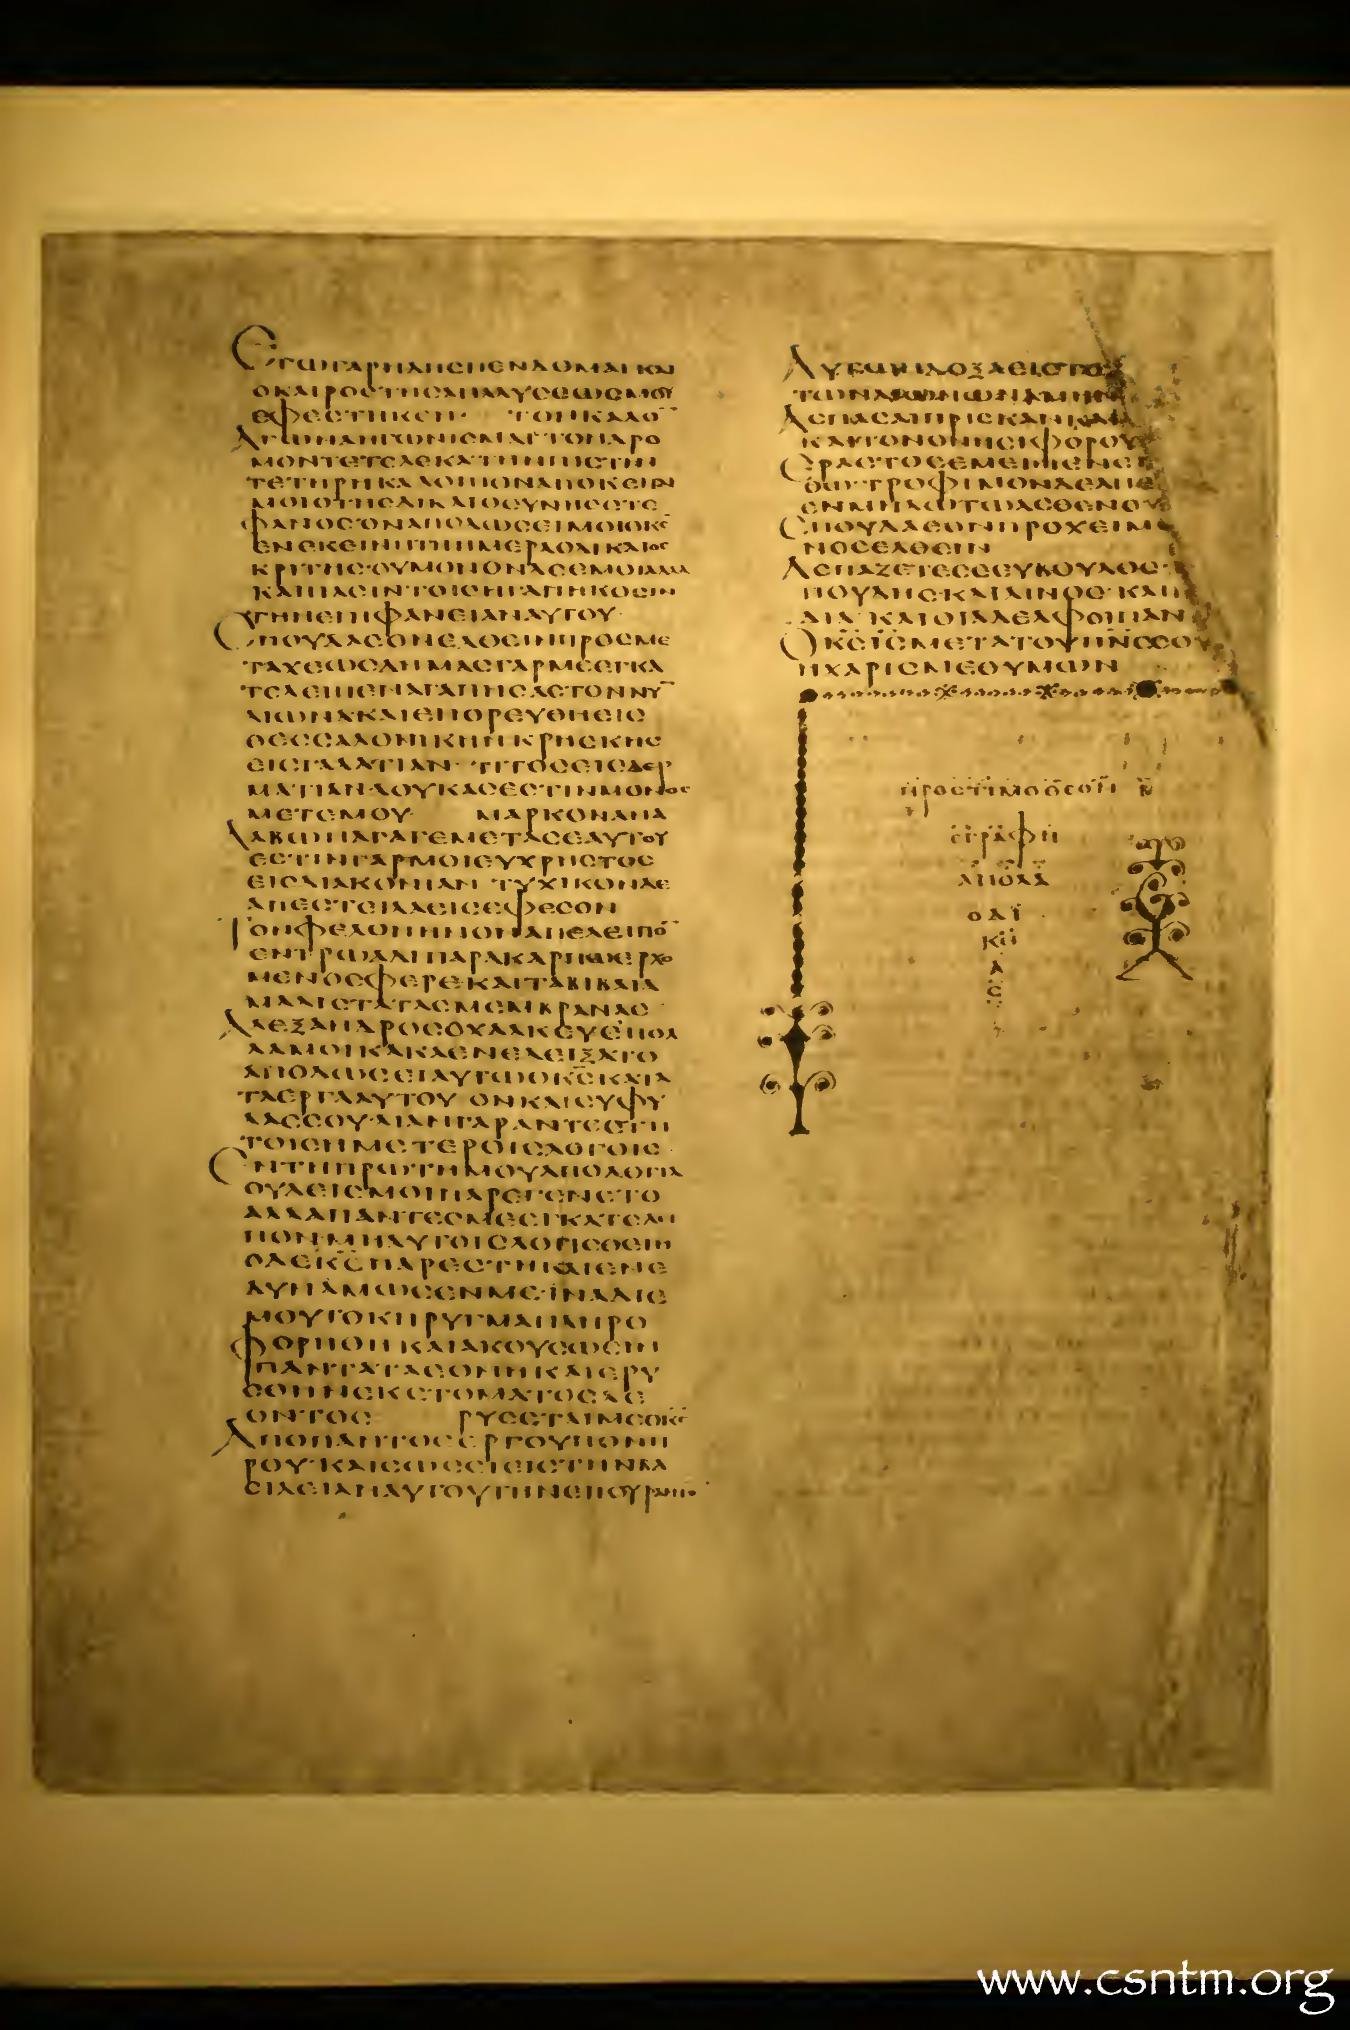 ΕΓΩΓΑΡΗΔΗΣΠΕΝΔΟΜΑΙΚΑΙ
ΟΚΑΙΡΟΣΤΗΣΑΝΑΛΥΣΕΩΣΜΟΥ
ΕΦΕΣΤΗΚΕΝ· ΤΟΝΚΑΛΟ̅
ΑΓΩΝΑΗΓΩΝΙΣΜΑΙΤΟΝΔΡΟ
ΜΟΝΤΕΤΕΛΕΚΑΤΗΝΠΙΣΤΙΝ
ΤΕΤΗΡΗΚΑΛΟΙΠΟΝΑΠΟΚΕΙΤΑΙ
ΜΟΙΟΤΗΣΔΙΚΑΙΟΣΥΝΗΣΣΤΕ
ΦΑΝΟΣΟΝΑΠΟΔΩΣΕΙΜΟΙΟΚ̅Σ̅
ΕΝΕΚΕΙΝΗΤΗΗΜΕΡΑΟΔΙΚΑΙΟΣ
ΚΡΙΤΗΣ·ΟΥΜΟΝΟΝΔΕΕΜΟΙΑΛΛΑ
ΚΑΙΠΑΣΙΝΤΟΙΣΗΓΑΠΗΚΟΣΙΝ
ΤΗΝΕΠΙΦΑΝΕΙΑΝΑΥΤΟΥ·
ΣΠΟΥΔΑΣΟΝΕΛΘΕΙΝΠΡΟΣΜΕ
ΤΑΧΕΩΣΔΗΜΑΣΓΑΡΜΕΕΓΚΑ
ΤΕΛΕΙΠΕΝΑΓΑΠΗΣΑΣΤΟΝΝΥ̅
ΑΙΩΝΑΚΑΙΕΠΟΡΕΥΘΗΕΙΣ
ΘΕΣΣΑΛΟΝΙΚΗΝΚΡΗΣΚΗΣ
ΕΙΣΓΑΛΑΤΙΑΝ· ΤΙΤΟΣΕΙΣΔΕΡ
ΜΑΤΙΑΝ·ΛΟΥΚΑΣΕΣΤΙΝΜΟΝΟΣ
ΜΕΤΕΜΟΥ· ΜΑΡΚΟΝΑΝΑ
ΛΑΒΩΝΑΓΑΓΕΜΕΤΑΣΕΑΥΤΟΥ
ΕΣΤΙΝΓΑΡΜΟΙΕΥΧΡΗΣΤΟΣ
ΕΙΣΔΙΑΚΟΝΙΑΝ ΤΥΧΙΚΟΝΔΕ
ΑΠΕΣΤΕΙΛΑΕΙΣΕΦΕΣΟΝ
ΤΟΝΦΕΛΟΝΗΝΟΝΑΠΕΛΕΙΠΟ̅
ΕΝΤΡΩΑΔΙΠΑΡΑΚΑΡΠΩΕΡΧΟ
ΜΕΝΟΣΦΕΡΕΚΑΙΤΑΒΙΒΛΙΑ
ΜΑΛΙΣΤΑΤΑΣΜΕΜΒΡΑΝΑΣ
ΑΛΕΞΑΝΔΡΟΣΟΧΑΛΚΕΥΣΠΟΛ
ΛΑΜΟΙΚΑΚΑΕΝΕΔΕΙΞΑΤΟ
ΑΠΟΔΩΣΕΙΑΥΤΩΟΚ̅Σ̅ΚΑΤΑ
ΤΑΕΡΓΑΑΥΤΟΥ ΟΝΚΑΙΣΥΦΥ
ΛΑΣΣΟΥ·ΛΙΑΝΓΑΡΑΝΤΕΣΤΗ
ΤΟΙΣΗΜΕΤΕΡΟΙΣΛΟΓΟΙΣ·
ΕΝΤΗΠΡΩΤΗΜΟΥΑΠΟΛΟΓΙΑ
ΟΥΔΕΙΣΜΟΙΠΑΡΕΓΕΝΕΤΟ
ΑΛΛΑΠΑΝΤΕΣΜΕΕΓΚΑΤΕΛΙ
ΠΟΝ·ΜΗΑΥΤΟΙΣΛΟΓΙΣΘΕΙΗ
ΟΔΕΚ̅Σ̅ΠΑΡΕΣΤΗΚΑΙΕΝΕ
ΔΥΝΑΜΩΣΕΝΜΕ·ΙΝΑΔΙΕ
ΜΟΥΤΟΚΗΡΥΓΜΑΠΛΗΡΟ
ΦΟΡΗΘΗΚΑΙΑΚΟΥΣΩΣΙΝ
ΠΑΝΤΑΤΑΕΘΝΗΚΑΙΕΡΥ
ΣΘΗΝΕΚΣΤΟΜΑΤΟΣΛΕ
ΟΝΤΟΣ ΡΥΣΕΤΑΙΜΕΟΚ̅Σ̅
ΑΠΟΠΑΝΤΟΣΕΡΓΟΥΠΟΝΗ
ΡΟΥ·ΚΑΙΣΩΣΕΙΕΙΣΤΗΝΒΑ
ΣΙΛΕΙΑΝΑΥΤΟΥΤΗΝΕΠΟΥΡΑΝΙΟ̅
ΩΗΔΟΞΑΕΙΣΤΟΥΣ
ΤΩΝΑΙΩΝΩΝΑΜΗΝ
ΑΣΠΑΣΑΙΠΡΙΣΚΑΝΚΑΙ
ΚΑΙΤΟΝΟΝΗΣΙΦΟΡΟΥ
ΕΡΑΣΤΟΣΕΜΕΙΝΕΝΕ
ΤΡΟΦΙΜΟΝΔΕΑΠΕ
ΕΝΜΗΛΩΤΩΑΣΘΕΝΟΥ
ΣΠΟΥΔΑΣΟΝΠΡΟΧΕΙΜ
ΝΟΣΕΛΘΕΙΝ
ΑΣΠΑΖΕΤΕΣΕΕΥΒΟΥΛΟΣ·
ΠΟΥΔΗΣΚΑΙΛΙΝΟΣ·ΚΑΙ
ΔΙΑ·ΚΑΙΟΙΑΔΕΛΦΟΙΠΑΝ
ΟΚ̅Σ̅Ι̅Σ̅ΜΕΤΑΤΟΥΠ̅Ν̅Σ̅ΣΟΥ
ΗΧΑΡΙΣΜΕΘΥΜΩΝ
ΠΡΟΣΤΙΜΟΘΕΟΝ Β̅
ΕΓΡΑΦΗ
ΑΠΟΛΑ
ΟΔΙ
ΚΙ
Α
Σ
www.csntm.org